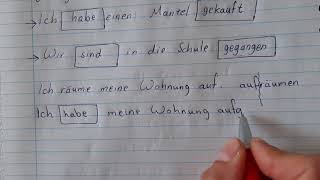 → Ich habe einen Mantel gekauft
→ Wir sind in die Schule gegangen
Ich räume meine Wohnung auf. aufräumen
Ich habe meine Wohnung aufg